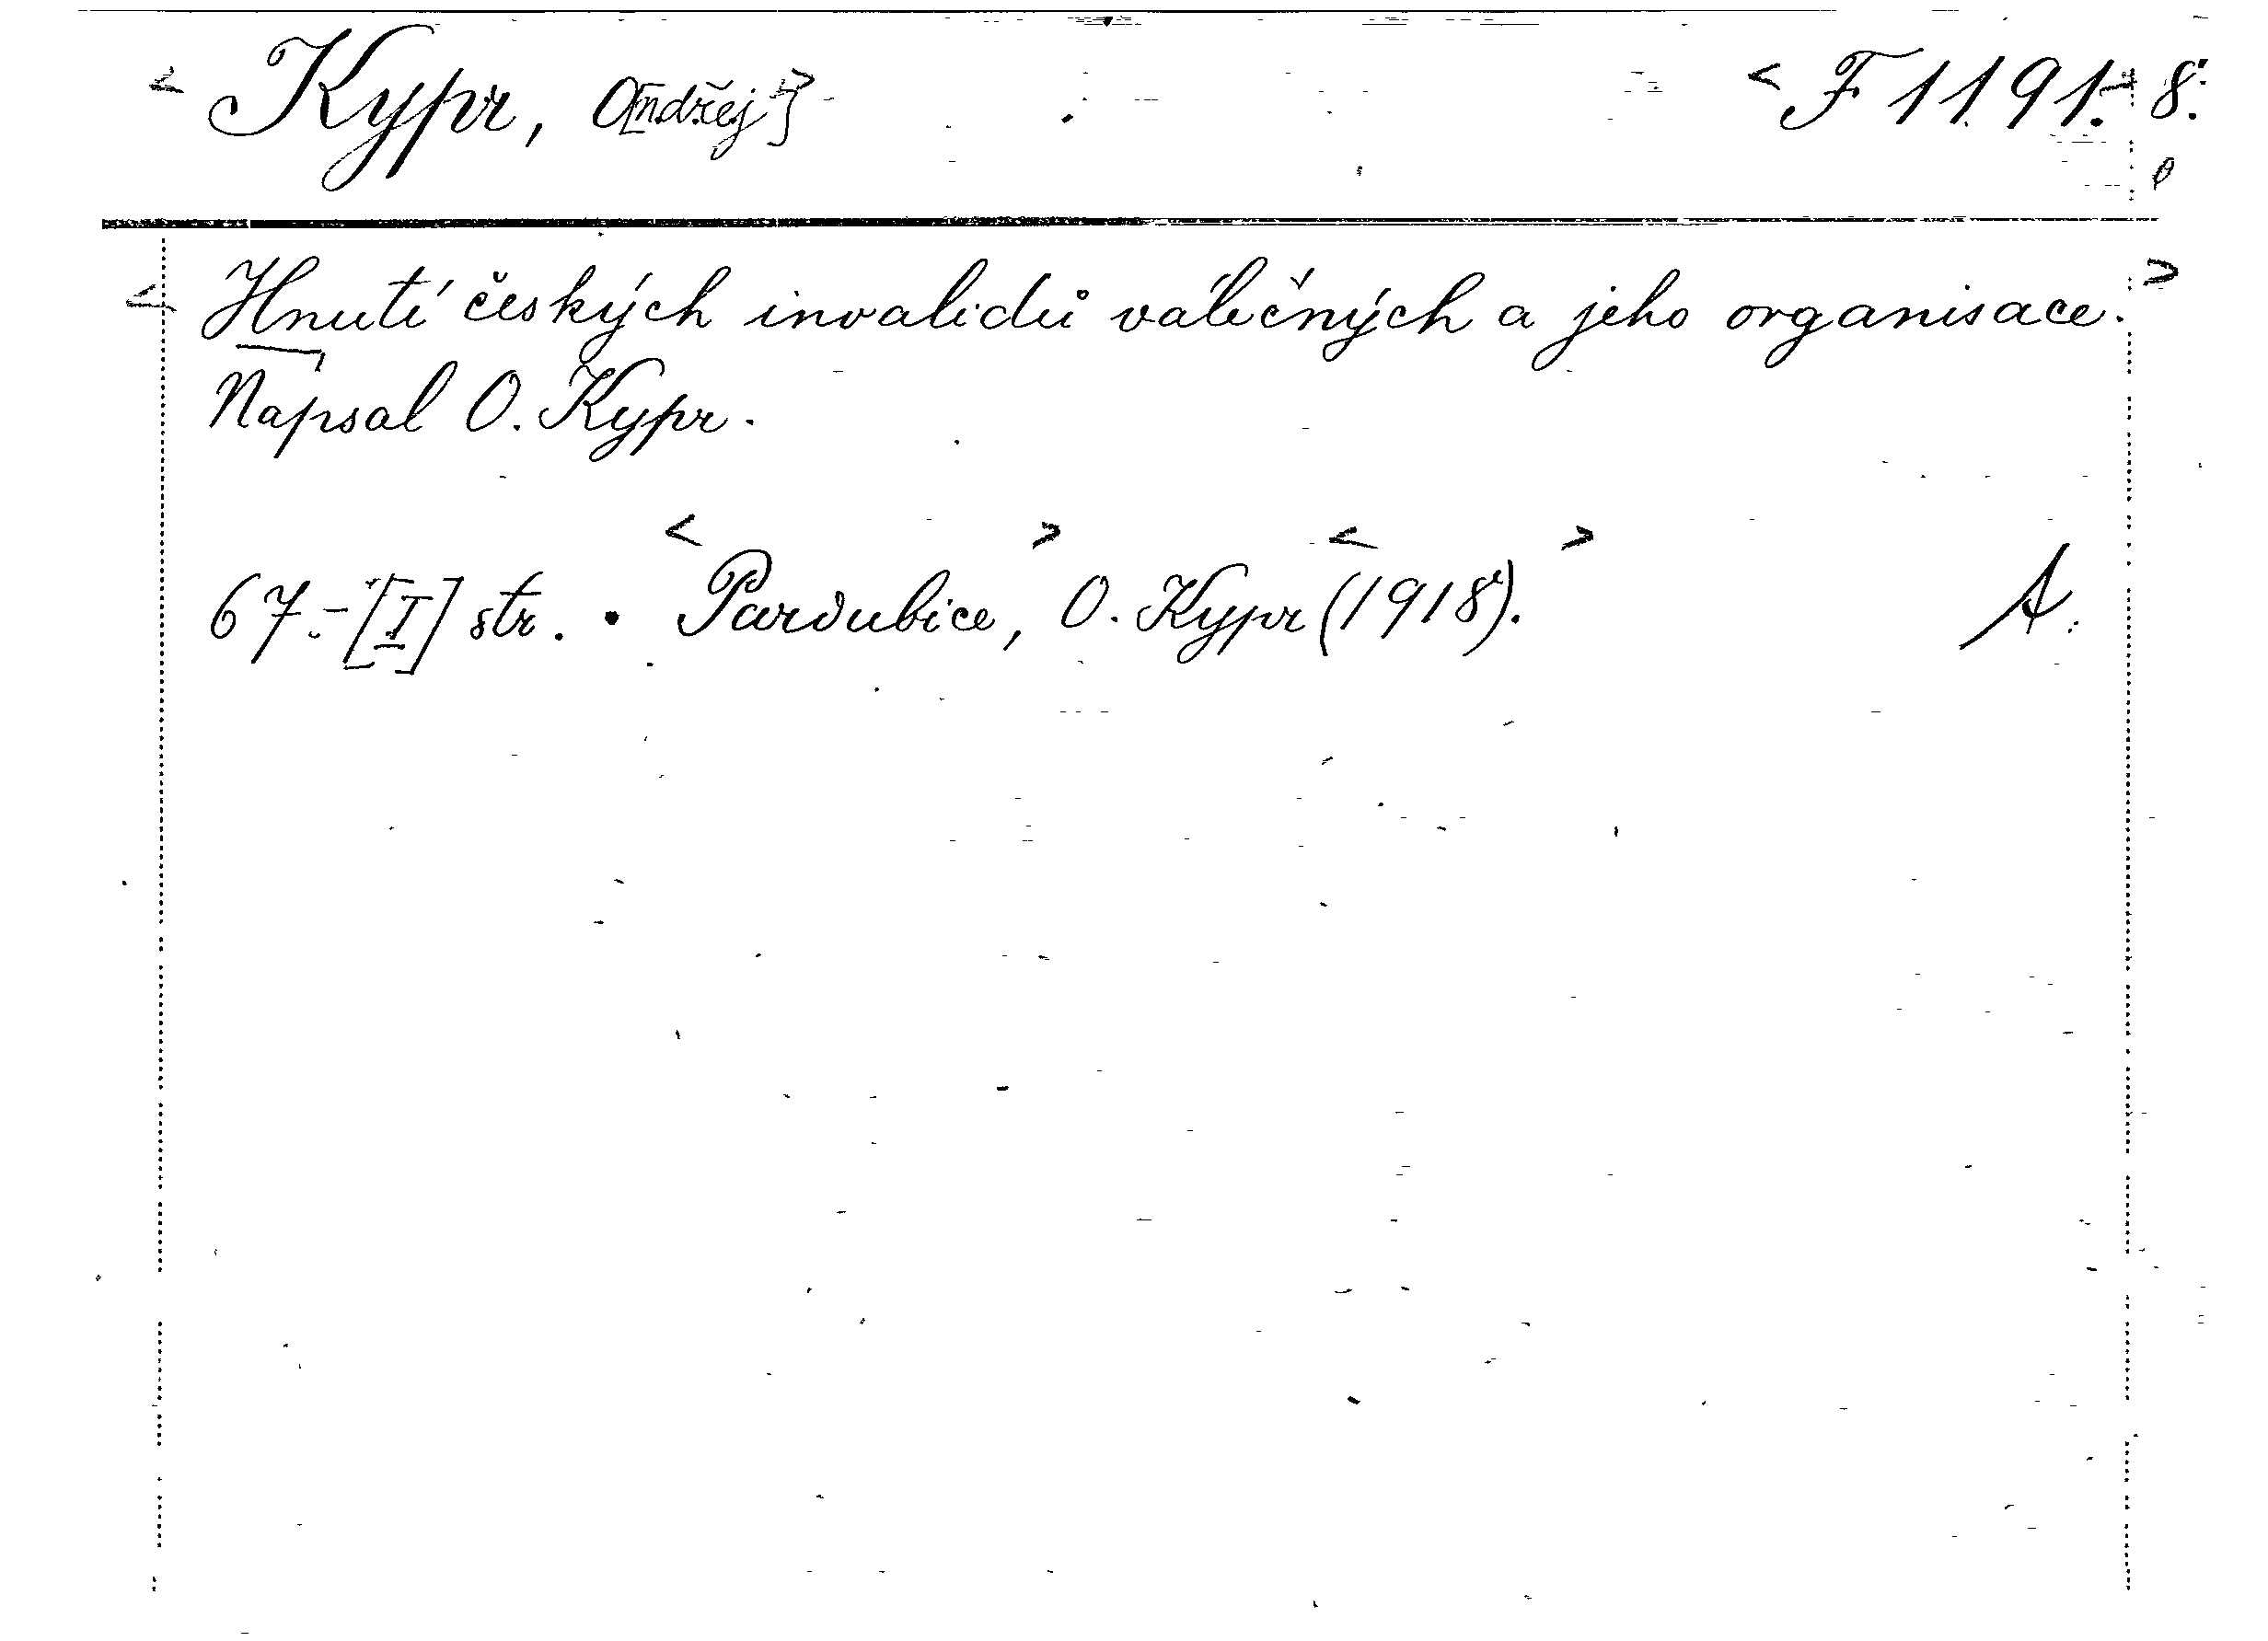 < Kypr, O[ndřej]> <F 1191.- 8:
< Hnutí českých invalidů válečných a jeho organisace. >
Napsal O. Kypr.
< > < >
67.-[I] str. • Pardubice, O. Kypr (1918). A.